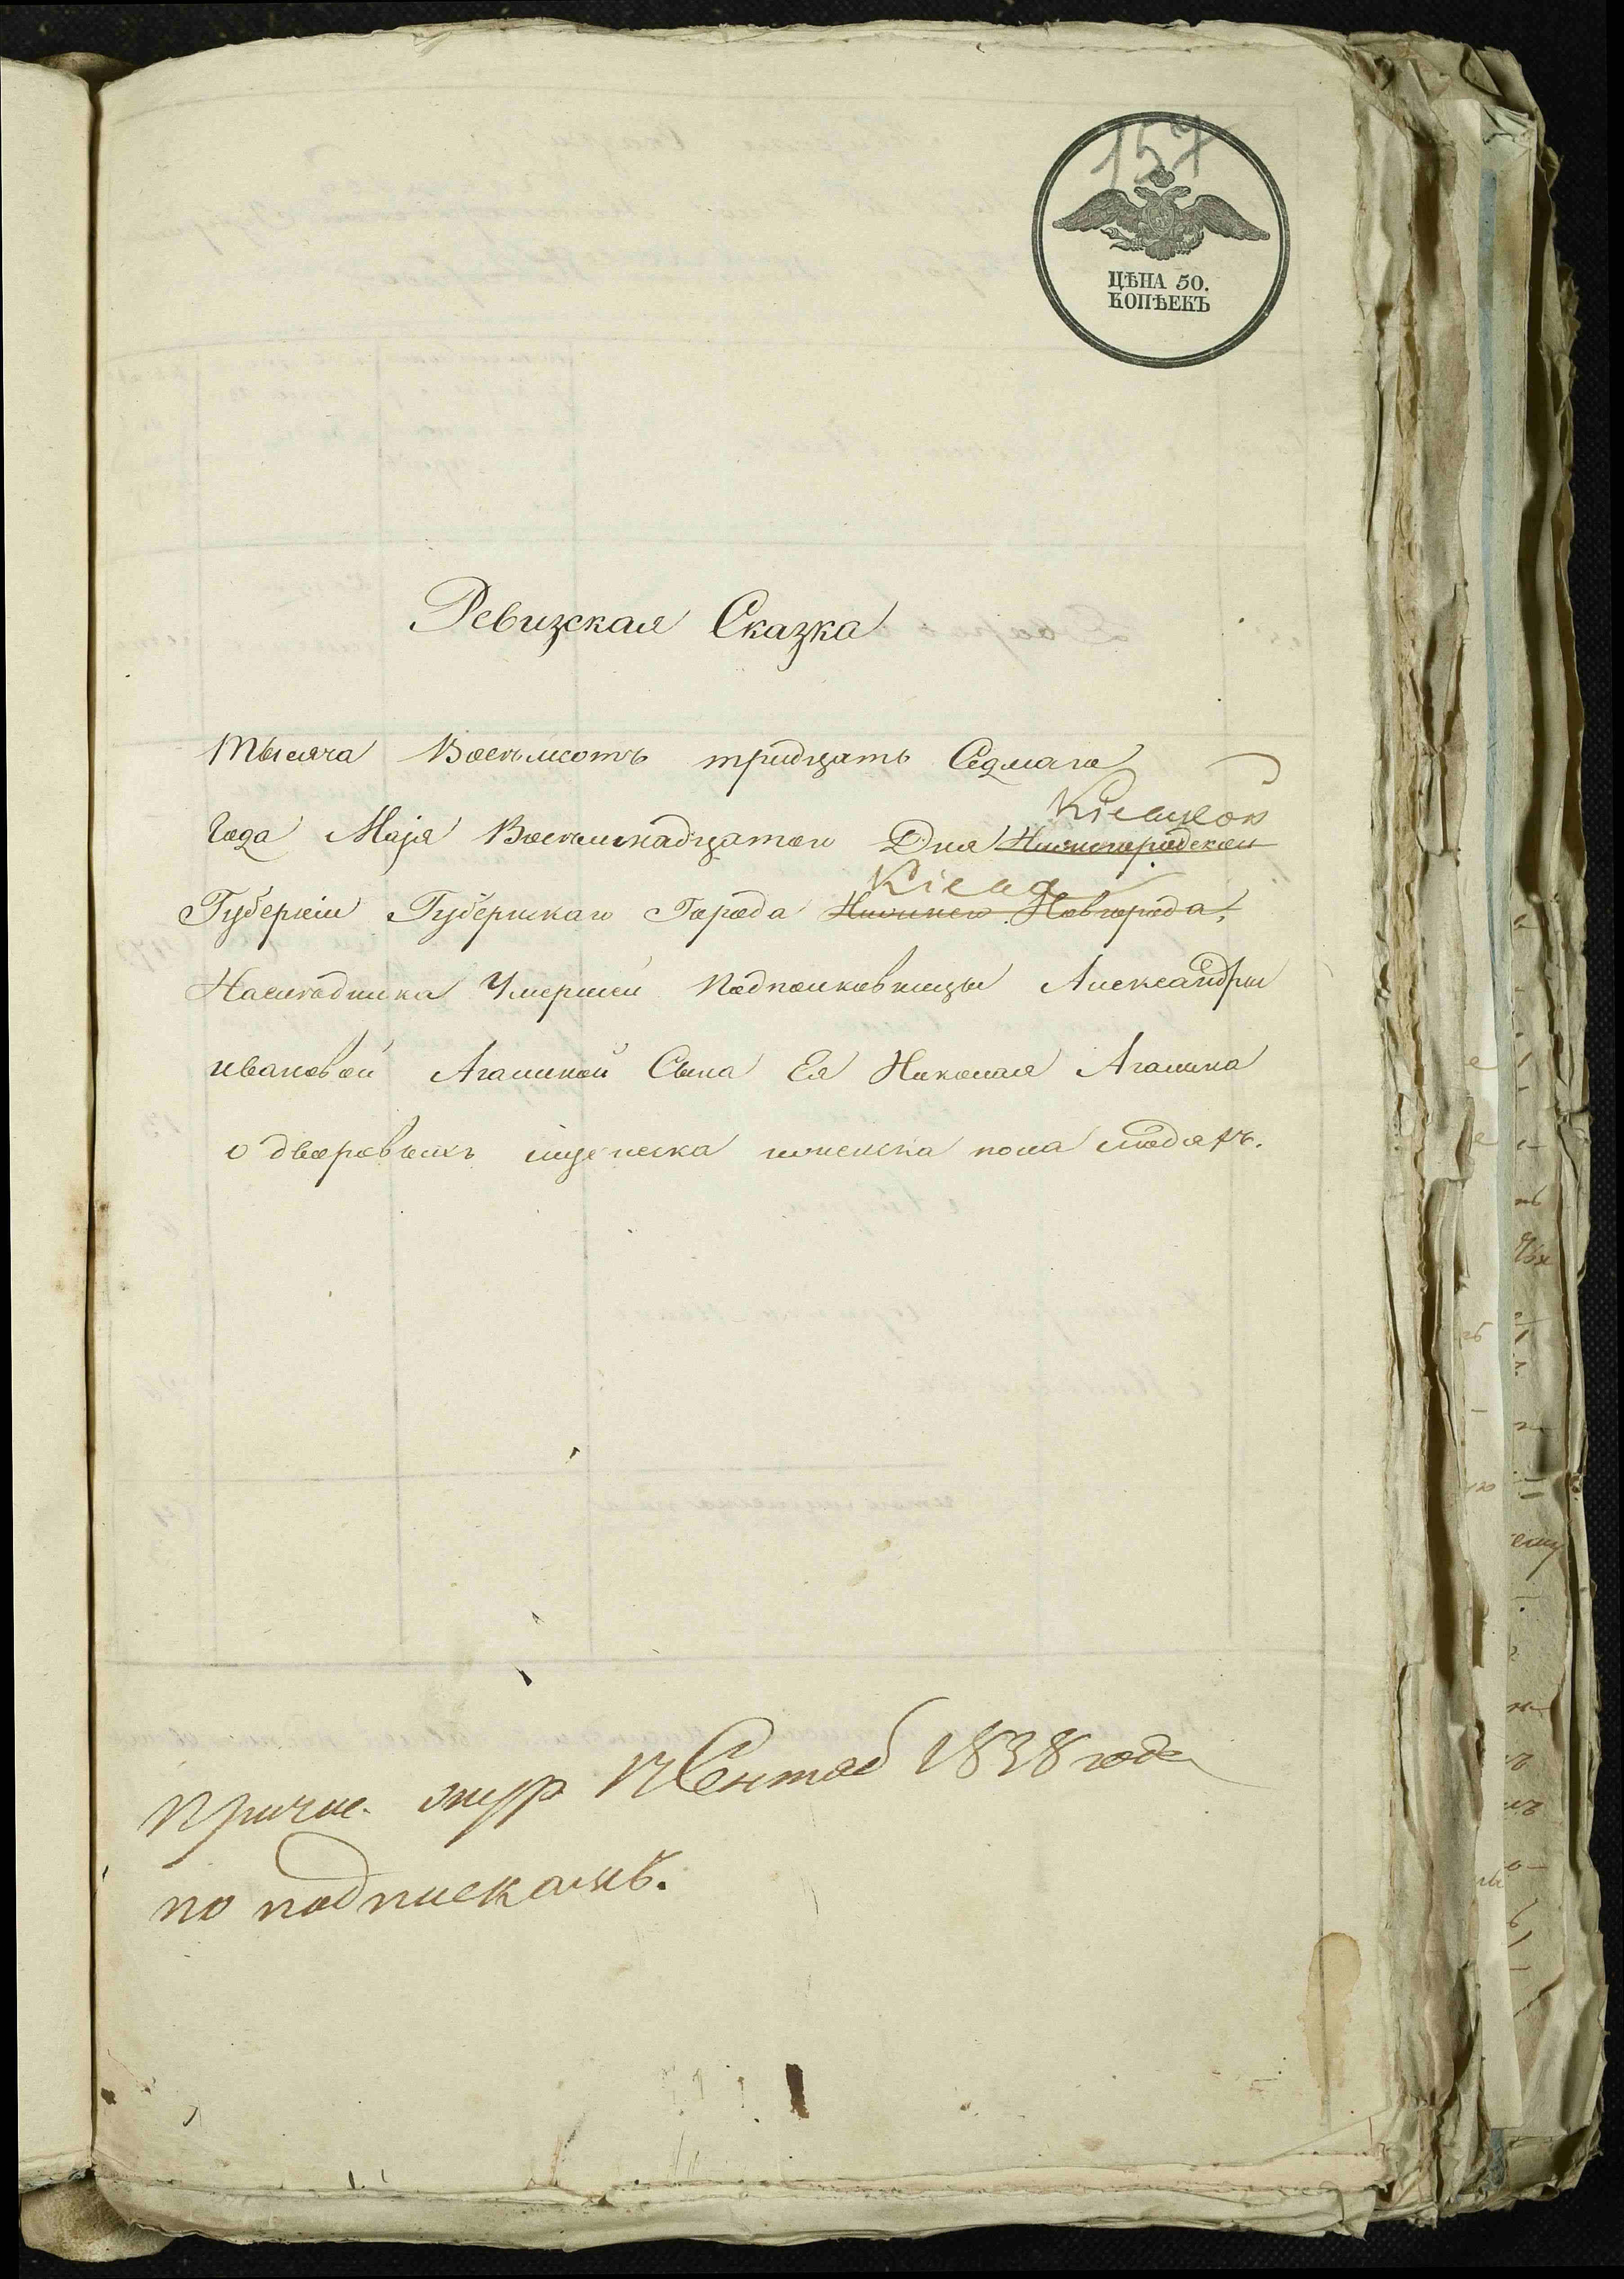 157
ЦѢНА 50.
КОПѢЕКЪ
Ревизская Сказка
Тысяча Восемьсотъ тридцать Седмаго
Кіевской
Года Маія Восемнадцатаго Дня Нижегородской
Кіева
Губерніи Губернскаго Города Нижнего Новгорода,
Наследника Умершей Подполковницы Александры
ивановой Агалиной Сына Ея Николая Агалина
о дворовыхъ мужеска и женска пола людяхъ.
Причис. жур 17 Сентяб 1838 года
по подпискамъ.